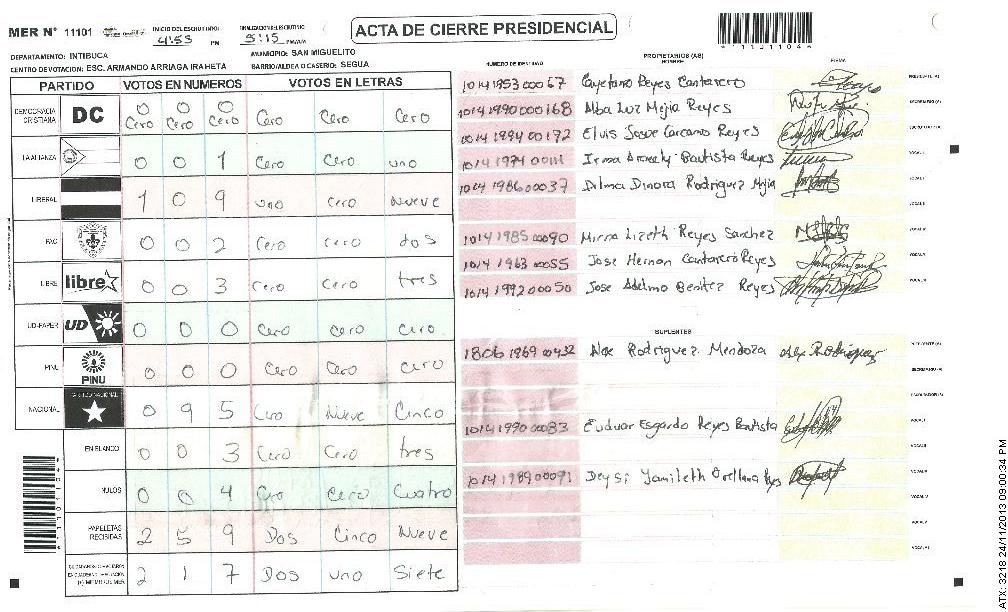 MER N° 11101
INICIO DEL ESCRUTINIO
4:55 PM
FINALIZACION DEL ESCRUTINIO
5:15 PM/AM
ACTA DE CIERRE PRESIDENCIAL
*111014*
DEPARTAMENTO: INTIBUCA
MUNICIPIO: SAN MIGUELITO
CENTRO DE VOTACION: ESC. ARMANDO ARRIAGA IRAHETA
BARRIO/ALDEA O CASERIO: SEGUA
PARTIDO VOTOS EN NUMEROS VOTOS EN LETRAS
DEMOCRACIA CRISTIANA DC 0 0 0 Cero Cero Cero Cero Cero Cero
LA ALIANZA 0 0 1 Cero Cero uno
LIBERAL 1 0 9 uno Cero Nueve
PAC 0 0 2 Cero cero dos
LIBRE libre 0 0 3 Cero Cero tres
UD-FAPER UD 0 0 0 Cero Cero Cero
PINU PINU 0 0 0 Cero Cero Cero
NACIONAL PARTIDO NACIONAL 0 9 5 Cero Nueve Cinco
EN BLANCO 0 0 3 Cero Cero tres
NULOS 0 0 4 Cero Cero Cuatro
PAPELETAS RECIBIDAS 2 5 9 Dos Cinco Nueve
2 1 7 Dos uno Siete
NUMERO DE IDENTIDAD PROPIETARIOS (AS) FIRMA
1014 1953 00067 Cayetano Reyes Cantarero PRESIDENTE (A)
1014 1990 000168 Alba Luz Mejia Reyes SECRETARIO (A)
1014 1994 00172 Elvis Josue Carcamo Reyes ESCRUTADOR (A)
1014 1974 00111 Irma Aracely Bautista Reyes VOCAL I
1014 1986 00037 Dilma Dinora Rodriguez Mejia VOCAL II
1014 1985 00090 Mirna Lizeth Reyes Sanchez
1014 1963 00055 Jose Hernan Cantarero Reyes
1014 1992 00050 Jose Adelmo Benitez Reyes
SUPLENTES
1806 1969 00432 Alex Rodriguez Mendoza Alex Rodriguez PRESIDENTE (A)
SECRETARIO (A)
ESCRUTADOR (A)
1014 1990 00083 Euduar Esgardo Reyes Bautista VOCAL I
VOCAL II
1014 1989 00091 Deysi Jamileth Orellana Reyes VOCAL III
VOCAL IV
VOCAL V
VOCAL VI
ATX: 3218 24/11/2013 09:00:34 PM